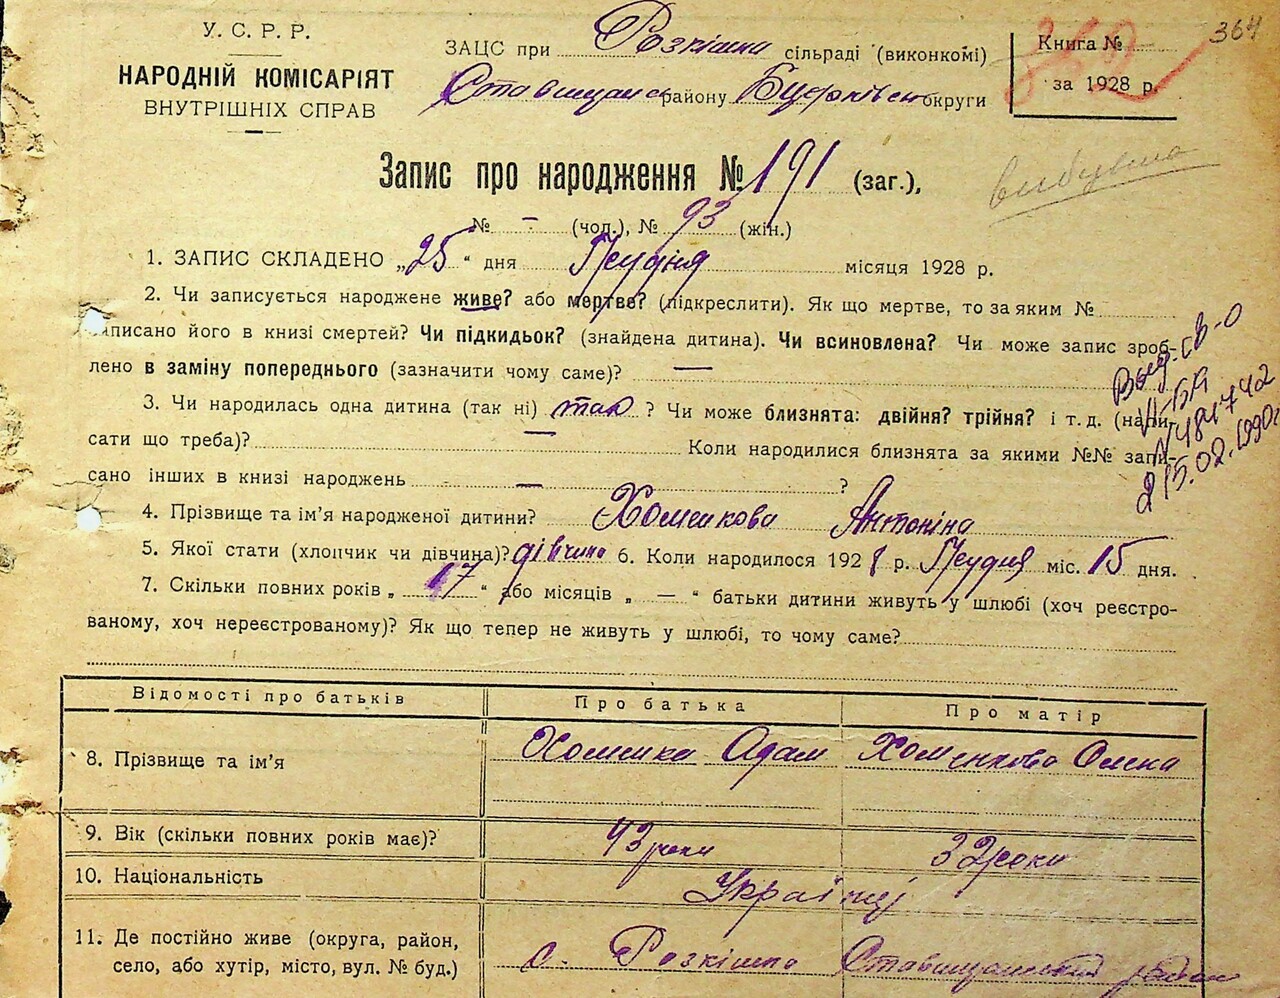 У. С. Р. Р.
НАРОДНІЙ КОМІСАРІЯТ
ВНУТРІШНІХ СПРАВ
ЗАЦС при Розкішна сільраді (виконкомі)
Ставищанськ району округи
Книга №
за 1928 р.
364
Запис про народження № 191 (заг.),
вибувша
№ - (чол.), № 93 (жін.)
1. ЗАПИС СКЛАДЕНО „25“ дня Грудня місяця 1928 р.
2. Чи записується народжене живе? або мертве? (підкреслити). Як що мертве, то за яким №
записано його в книзі смертей? Чи підкидьок? (знайдена дитина). Чи всиновлена? Чи може запис зроб-
лено в заміну попереднього (зазначити чому саме)? —
3. Чи народилась одна дитина (так ні) так ? Чи може близнята: двійня? трійня? і т. д. (напи-
сати що треба)? — Коли народилися близнята за якими №№ запи-
сано інших в книзі народжень — ?
Выд. св-о
II-БК
N 481742
15.02.1990г
4. Прізвище та ім'я народженої дитини? Хоменкова Антоніна
5. Якої стати (хлопчик чи дівчина)? дівчина 6. Коли народилося 1928 р. Грудня міс. 15 дня.
7. Скільки повних років „ 17 “ або місяців „ — “ батьки дитини живуть у шлюбі (хоч реєстро-
ваному, хоч нереєстрованому)? Як що тепер не живуть у шлюбі, то чому саме?
Відомості про батьків Про батька Про матір
8. Прізвище та ім'я Хоменко Адам Хоменкова Олена
9. Вік (скільки повних років має)? 43 роки 32 роки
10. Національність Українці
11. Де постійно живе (округа, район,
село, або хутір, місто, вул. № буд.) с. Розкішна Ставищанський район